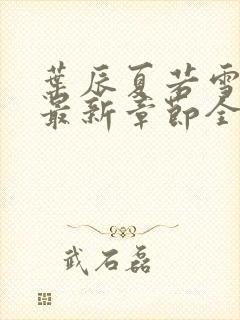 葉辰夏若雪
最新章節全
武石磊